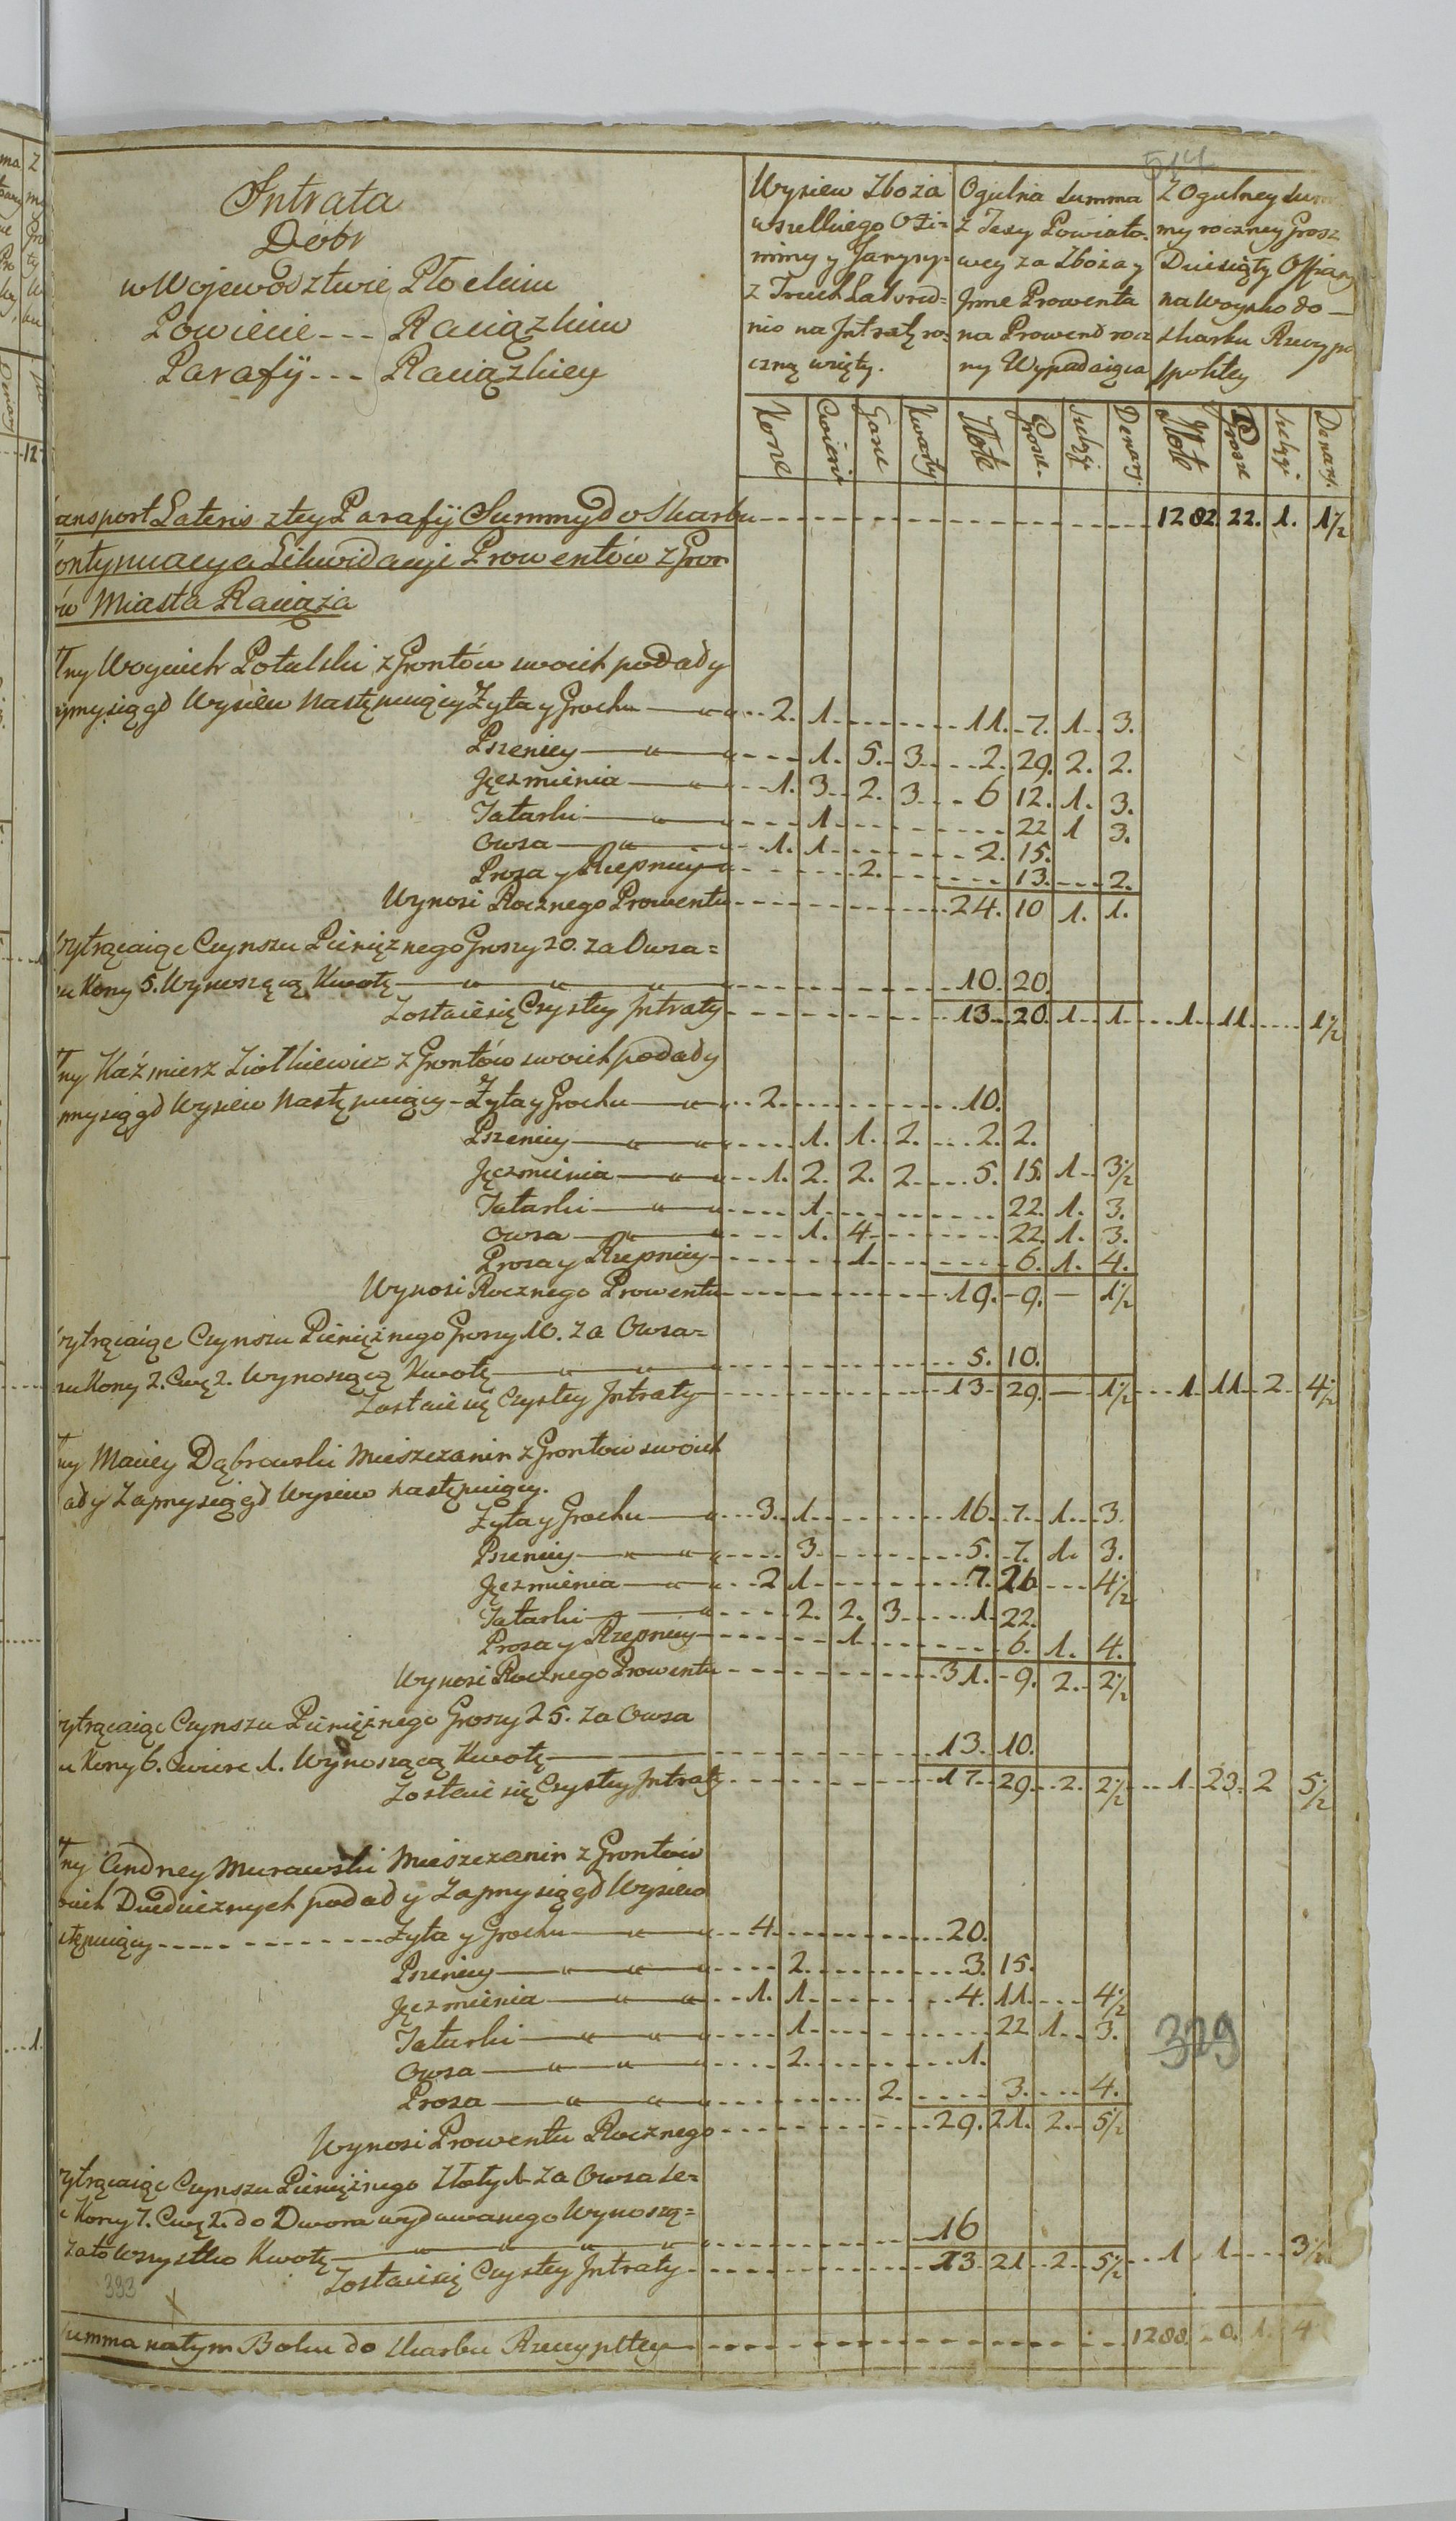 514
Intrata
Dobr
w Wojewodztwie Płockim
Powiecie --- Raciązkim
Parafij --- Raciązkiey
Wysiew Zboża
wszelkiego Ozi=
miny y Jarzyny
z Trzech Lat sred=
nio na Intratę ro=
czną wzięty.
Ogulna Summa
z Taxy Powiato=
wey za Zboża y
Jnne Prowenta
na Prowent rocz
ny Wypadaiąca
Z Ogulney Sum
my roczney Grosz
Dziesiąty Offiary
na Woysko do —
skarbu Rzeczypo
spolitey
Korce Cwierci Garce Kwarty Złote Grosze Szelągi Denary Złote Grosze Szelągi Denary.
ansport Lateris z tey Parafij Summy do Skarbu 1282. 22. 1. 1½
ontynuacya Likwidacyi Prowentów z Gron
ów Miasta Raciąża
Woyciech Potulski z Grontów swoich podad y
ysiągł Wysiew następuiący Zyta y Grochu 2. 1. 11. 7. 1. 3.
Pszenicy 1. 5. 3. 2. 29. 2. 2.
Jęczmienia 1. 3. 2. 3. 6 12. 1. 3.
Tatarki 1 22 1 3.
Owsa 1. 1. 2. 15.
Prosa y Rzepnicy 2. 13. 2.
Wynosi Rocznego Prowentu 24. 10 1. 1.
ytrąciaiąc Czynszu Pieniężnego Groszy 20. za Owsa=
Korcy 5. Wynoszącą Kwotę 10. 20.
Zostaie się Czystey Intraty 13. 20. 1. 1. 1. 11. 1½
ny Kaźmierz Ziołkiewicz z Grontów swoich podad y
mysiągł Wysiew Następuiący - Zyta y Grochu 2. 10.
Pszenicy 1. 1. 2. 2. 2.
Jęczmienia 1. 2. 2. 2. 5. 15. 1. 3½
Tatarki 1. 22. 1. 3.
Owsa 1. 4. 22. 1. 3.
Prosa y Rzepnicy 1. 6. 1. 4.
Wynosi Rocznego Prowentu 19. 9. — 1½
ytrąciaiąc Czynszu Pieniężnego Groszy 10. za Owsa=
Korcy 2. Cwę 2. Wynoszącą Kwotę 5. 10.
Zostaie się Czystey Intraty 13. 29. — 1½ 1. 11. 2. 4½
ny Maciey Dąbrowski Mieszczanin z Grontów swoich
ad y Zaprzysiągł Wysiew następuiący.
Zyta y Grochu 3. 1. 16. 7. 1. 3.
Pszenicy 3. 5. 7. 1. 3.
Jęczmienia 2 1. 7. 26 4½
Tatarki 2. 2. 3. 1. 22.
Prosa y Rzepnicy 1. 6. 1. 4.
Wynosi Rocznego Prowentu 31. 9. 2. 2½
ytrąciaiąc Czynszu Pieniężnego Groszy 25. za Owsa
Korcy 6. Cwierc 1. Wynoszącą Kwotę 13. 10.
Zostaie się Czystey Intraty 17. 29. 2. 2½ 1. 23. 2 5½
ny Andrzey Murawski Mieszczanin z Grontów
oich Dziedzicznych podad y Zaprzysiągł Wysiew
stępuiący Zyta y Grochu 4. 20.
Pszenicy 2. 3. 15.
Jęczmienia 1. 1. 4. 11. 4½
Tatarki 1. 22 1. 3.
Owsa 2. 1.
Prosa 2. 3. 4.
Wynosi Prowentu Rocznego 29. 21. 2. 5½
329
ytrąciaiąc Czynszu Pieniężnego Złoty 1. za Owsa se=
Korcy 7. Cwę 2. do Dwora wydawanego Wynoszą=
za to Wszystko Kwotę 16
Zostaie się Czystey Intraty 13. 21. 2. 5½ 1. 1. 3½
333
umma na tym Boku do Skarbu Rzeczypltey 1288. 0. 1. 4